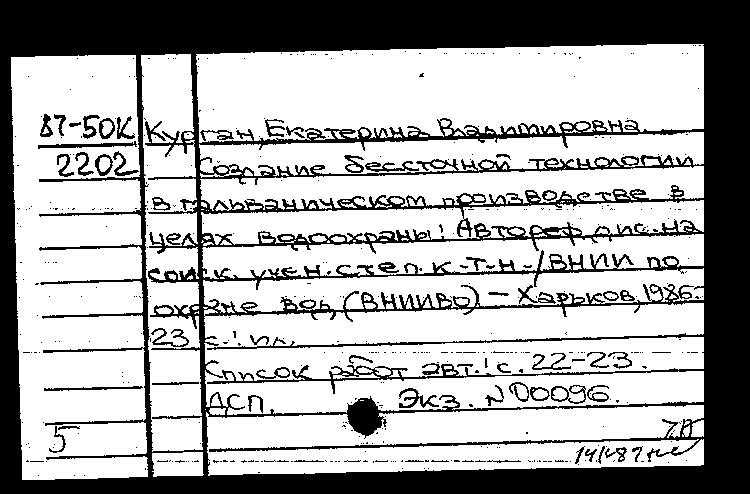 87-50К Курган, Екатерина Владимировна.
2202 Создание бессточной технологии
в гальваническом производстве в
целях водоохраны: Автореф. дис. на
соиск. учен. степ. к.т.н. / ВНИИ по
охране вод (ВНИИВО) – Харьков, 1986.
23 с.: ил.
Список работ авт.: с. 22-23.
ДСП. Экз. N 00096.
5